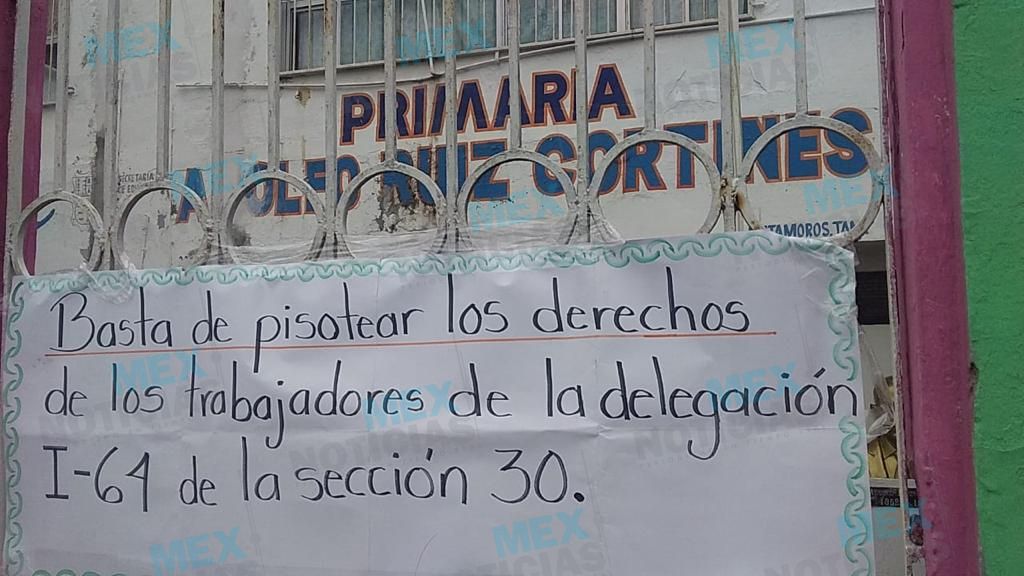 PRIMARIA
ADOLFO RUIZ CORTINES
SECRETARIA
TAMOROS, TAM
Basta de pisotear los derechos
de los trabajadores de la delegación
I-64 de la sección 30.
MEX
NOTICIAS